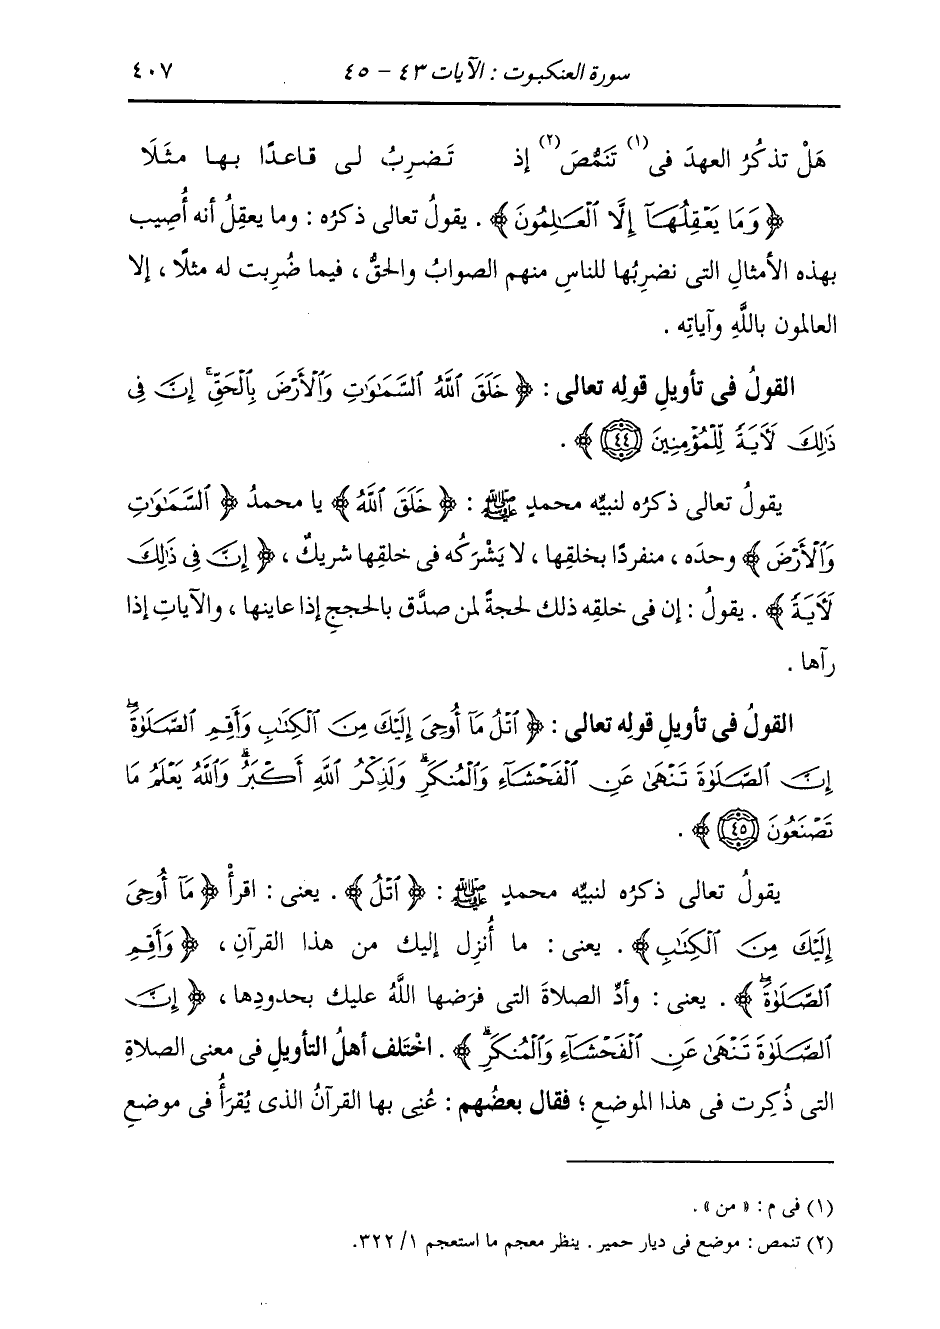 سورة العنكبوت : الآيات ٤٣ - ٤٥ ٤٠٧
هَلْ تذكُرُ العهدَ فى(١) تَنَمُّصَ(٢) إذ تَضرِبُ لى قاعدًا بها مثلَا
﴿ وَمَا يَعْقِلُهَآ إِلَّا ٱلْعَٰلِمُونَ ﴾ . يقولُ تعالى ذكرُه : وما يعقِلُ أنه أُصِيب
بهذه الأمثالِ التى نضرِبُها للناسِ منهم الصوابُ والحقُّ ، فيما ضُرِبت له مثلًا ، إلا
العالمون باللَّهِ وآياتِه .
القولُ فى تأويلِ قولِه تعالى : ﴿ خَلَقَ ٱللَّهُ ٱلسَّمَٰوَٰتِ وَٱلْأَرْضَ بِٱلْحَقِّ ۚ إِنَّ فِى
ذَٰلِكَ لَأَيَةً لِّلْمُؤْمِنِينَ ٤٤ ﴾ .
يقولُ تعالى ذكرُه لنبيِّه محمدٍ ﷺ : ﴿ خَلَقَ ٱللَّهُ ﴾ يا محمدُ ﴿ ٱلسَّمَٰوَٰتِ
وَٱلْأَرْضَ ﴾ وحدَه ، منفردًا بخلقِها ، لا يَشْرَكُه فى خلقِها شريكٌ ، ﴿ إِنَّ فِى ذَٰلِكَ
لَأَيَةً ﴾ . يقولُ : إن فى خلقِه ذلك لحجةً لمن صدَّق بالحججِ إذا عاينها ، والآياتِ إذا
رآها .
القولُ فى تأويلِ قولِه تعالى : ﴿ ٱتْلُ مَآ أُوحِىَ إِلَيْكَ مِنَ ٱلْكِتَٰبِ وَأَقِمِ ٱلصَّلَوٰةَ ۖ
إِنَّ ٱلصَّلَوٰةَ تَنْهَىٰ عَنِ ٱلْفَحْشَآءِ وَٱلْمُنكَرِ ۗ وَلَذِكْرُ ٱللَّهِ أَكْبَرُ ۗ وَٱللَّهُ يَعْلَمُ مَا
تَصْنَعُونَ ٤٥ ﴾ .
يقولُ تعالى ذكرُه لنبيِّه محمدٍ ﷺ : ﴿ ٱتْلُ ﴾ . يعنى : اقرأْ ﴿ مَآ أُوحِىَ
إِلَيْكَ مِنَ ٱلْكِتَٰبِ ﴾ . يعنى : ما أُنزِل إليك من هذا القرآنِ ، ﴿ وَأَقِمِ
ٱلصَّلَوٰةَ ۖ ﴾ . يعنى : وأدِّ الصلاةَ التى فرَضها اللَّهُ عليك بحدودِها ، ﴿ إِنَّ
ٱلصَّلَوٰةَ تَنْهَىٰ عَنِ ٱلْفَحْشَآءِ وَٱلْمُنكَرِ ۗ ﴾ . اخْتَلف أهلُ التأويلِ فى معنى الصلاةِ
التى ذُكِرت فى هذا الموضعِ ؛ فقال بعضُهم : عُنِى بها القرآنُ الذى يُقرَأُ فى موضعِ
(١) فى م : « من » .
(٢) تنمص : موضع فى ديار حمير . ينظر معجم ما استعجم ١/ ٣٢٢.